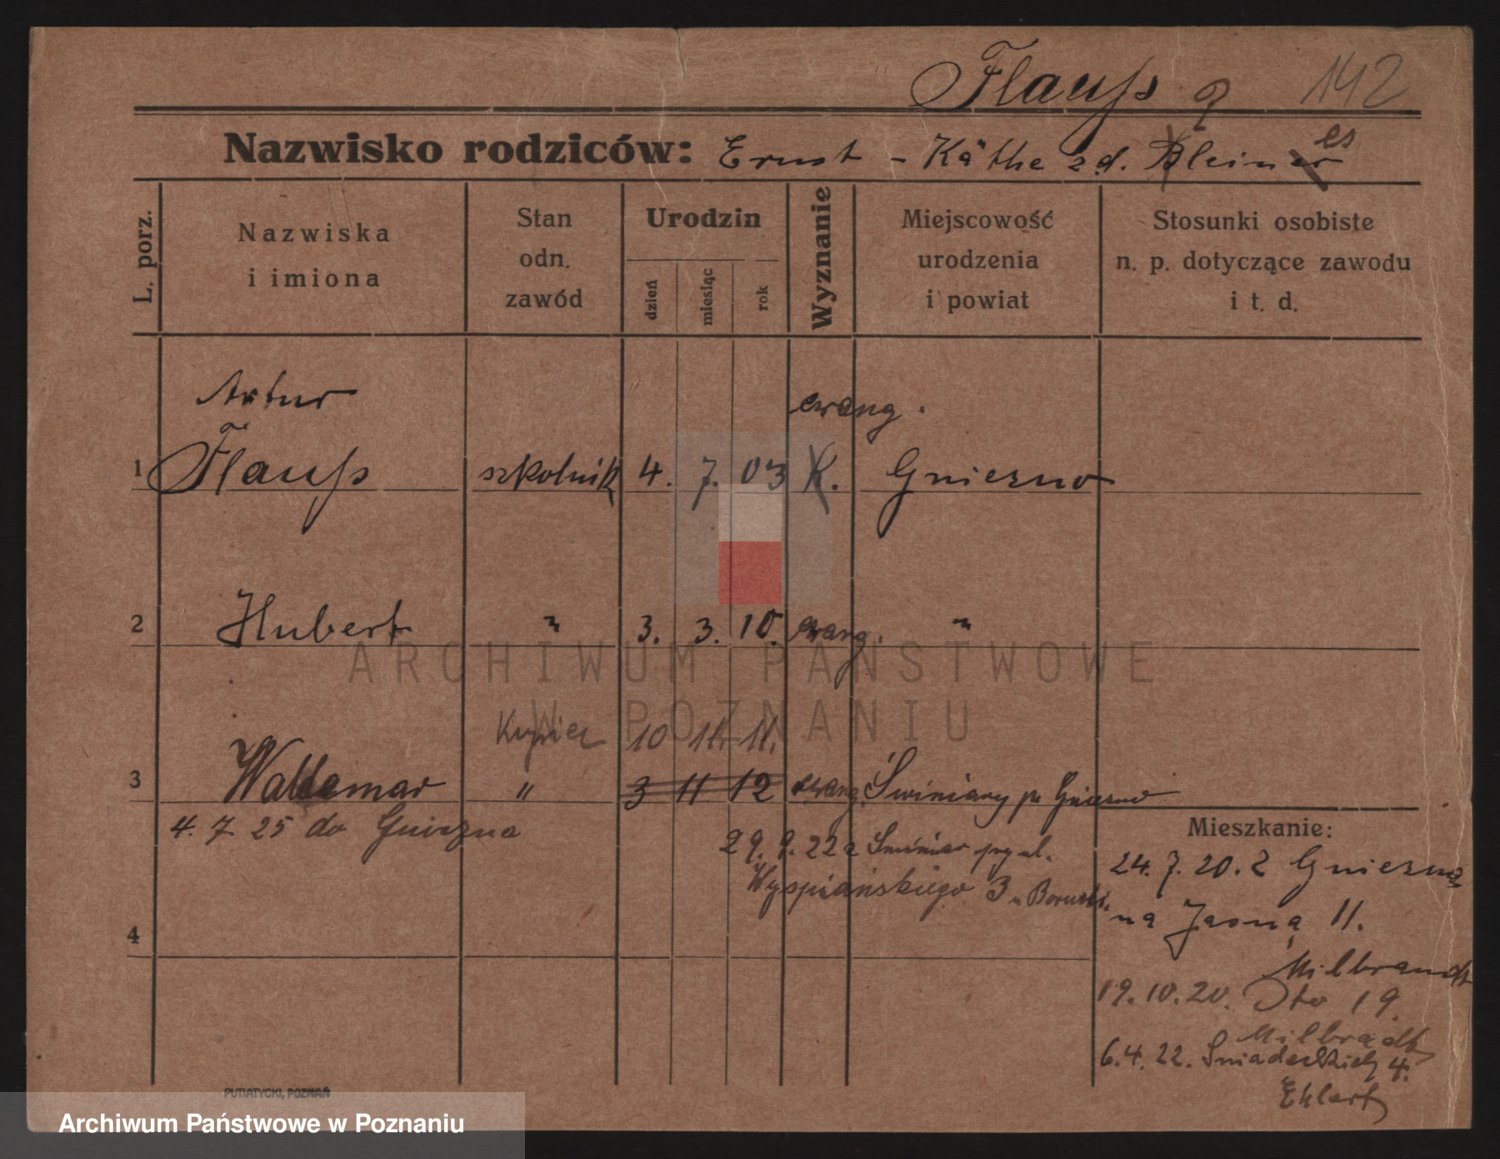 Flauß 142
Nazwisko rodziców: Ernst - Käthe zd. Kleines
L. porz.
Nazwiska
i imiona
Stan
odn.
zawód
Urodzin
dzień
miesiąc
rok
Wyznanie
Miejscowość
urodzenia
i powiat
Stosunki osobiste
n. p. dotyczące zawodu
i t. d.
Artur ewang.
1 Flauß szkolnik 4. 7. 03 K. Gniezno
2 Hubert " 3. 3. 10. ewang. "
ARCHIWUM PAŃSTWOWE
W POZNANIU
Kupiec 10 11. 11.
3 Waldemar " 3 11 12 ewang. Świniary p. Gniezno
4. 7. 25 do Gniezna
29. 9. 22 z
Wyspiańskiego 3
4
Mieszkanie:
24. 7. 20. z Gniezna
na Jasną 11.
Milbrandt
19. 10. 20. Dto 19.
Milbradt
6. 4. 22. Śniadeckich 4.
Ehlert
PUTIATYCKI, POZNAŃ
Archiwum Państwowe w Poznaniu